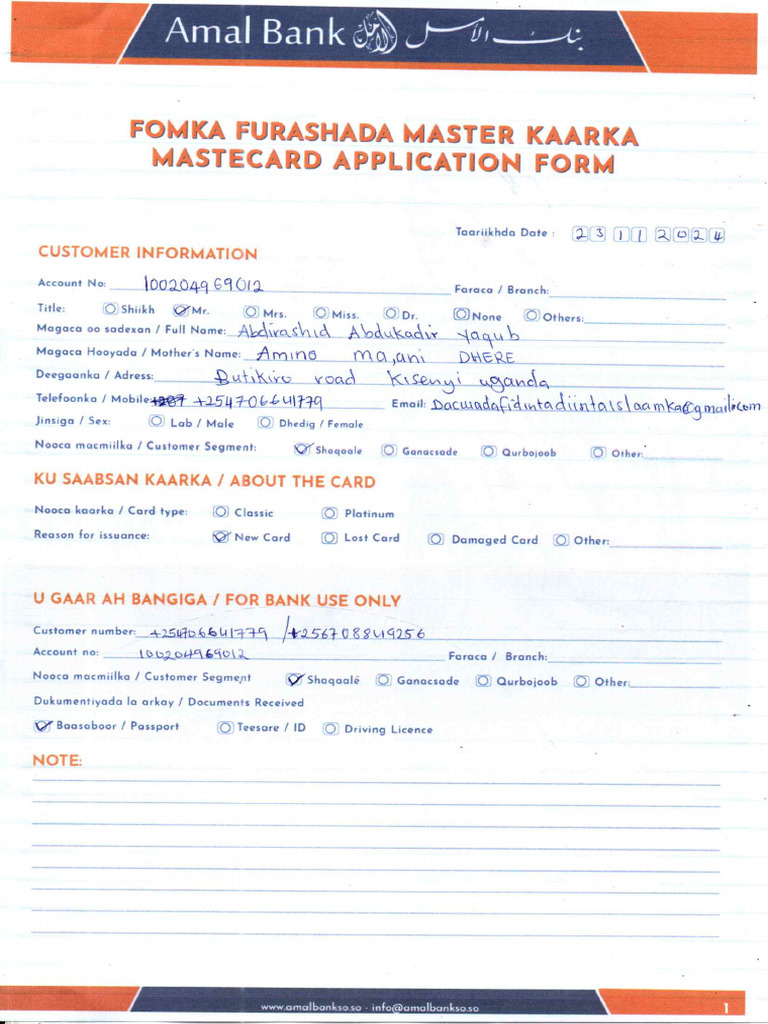 Amal Bank بنك الأمل
FOMKA FURASHADA MASTER KAARKA
MASTECARD APPLICATION FORM
Taariikhda Date : 23 11 2024
CUSTOMER INFORMATION
Account No: 100204969012 Faraca / Branch:
Title: Shiikh Mr. Mrs. Miss. Dr. None Others:
Magaca oo sadexan / Full Name: Abdirashid Abdukadir yaqub
Magaca Hooyada / Mother's Name: Amino ma,ani DHERE
Deegaanka / Adress: Butikiro road Kisenyi uganda
Telefoonka / Mobile +254706641779 Email: Dacwadafidintadiintaislaamka@gmail.com
Jinsiga / Sex: Lab / Male Dhedig / Female
Nooca macmiilka / Customer Segment: Shaqaale Ganacsade Qurbojoob Other:
KU SAABSAN KAARKA / ABOUT THE CARD
Nooca kaarka / Card type: Classic Platinum
Reason for issuance: New Card Lost Card Damaged Card Other:
U GAAR AH BANGIGA / FOR BANK USE ONLY
Customer number: +254706641779 / +256708849256
Account no: 100204969012 Faraca / Branch:
Nooca macmiilka / Customer Segment Shaqaalé Ganacsade Qurbojoob Other:
Dukumentiyada la arkay / Documents Received
Baasaboor / Passport Teesare / ID Driving Licence
NOTE:
www.amalbankso.so - info@amalbankso.so 1